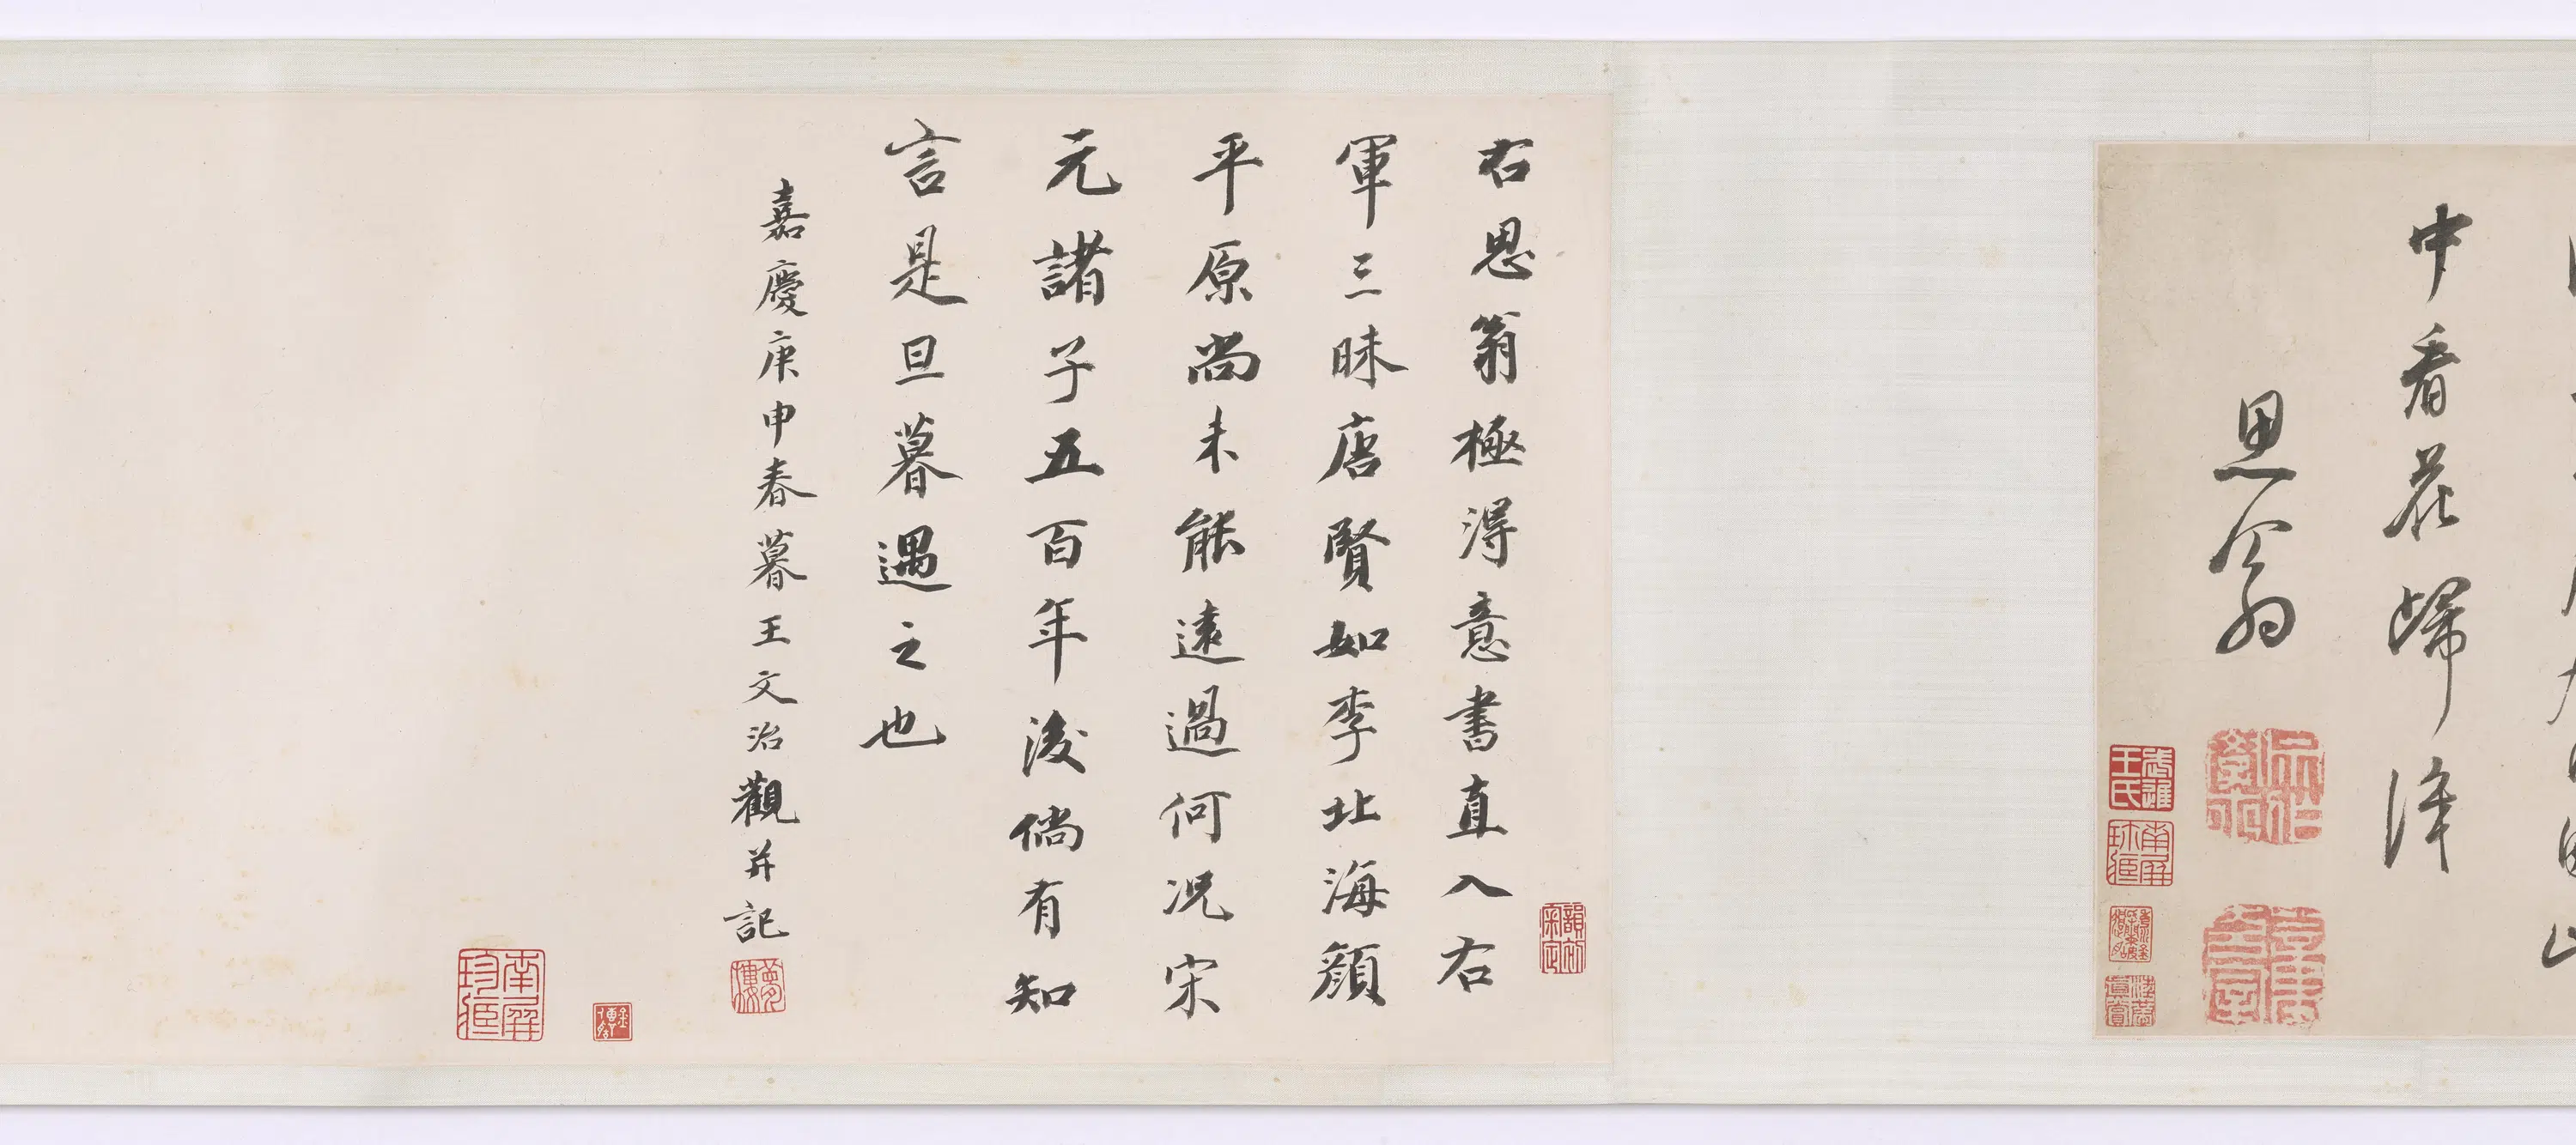 中看花歸洚
思翁
武進王氏
南屏珍藏
右思翁極得意書直入右
軍三昧唐賢如李北海顔
平原尚未能遠過何況宋
元諸子五百年後倘有知
言是旦暮遇之也
嘉慶庚申春暮王文治觀并記
夢樓
南屏珍藏